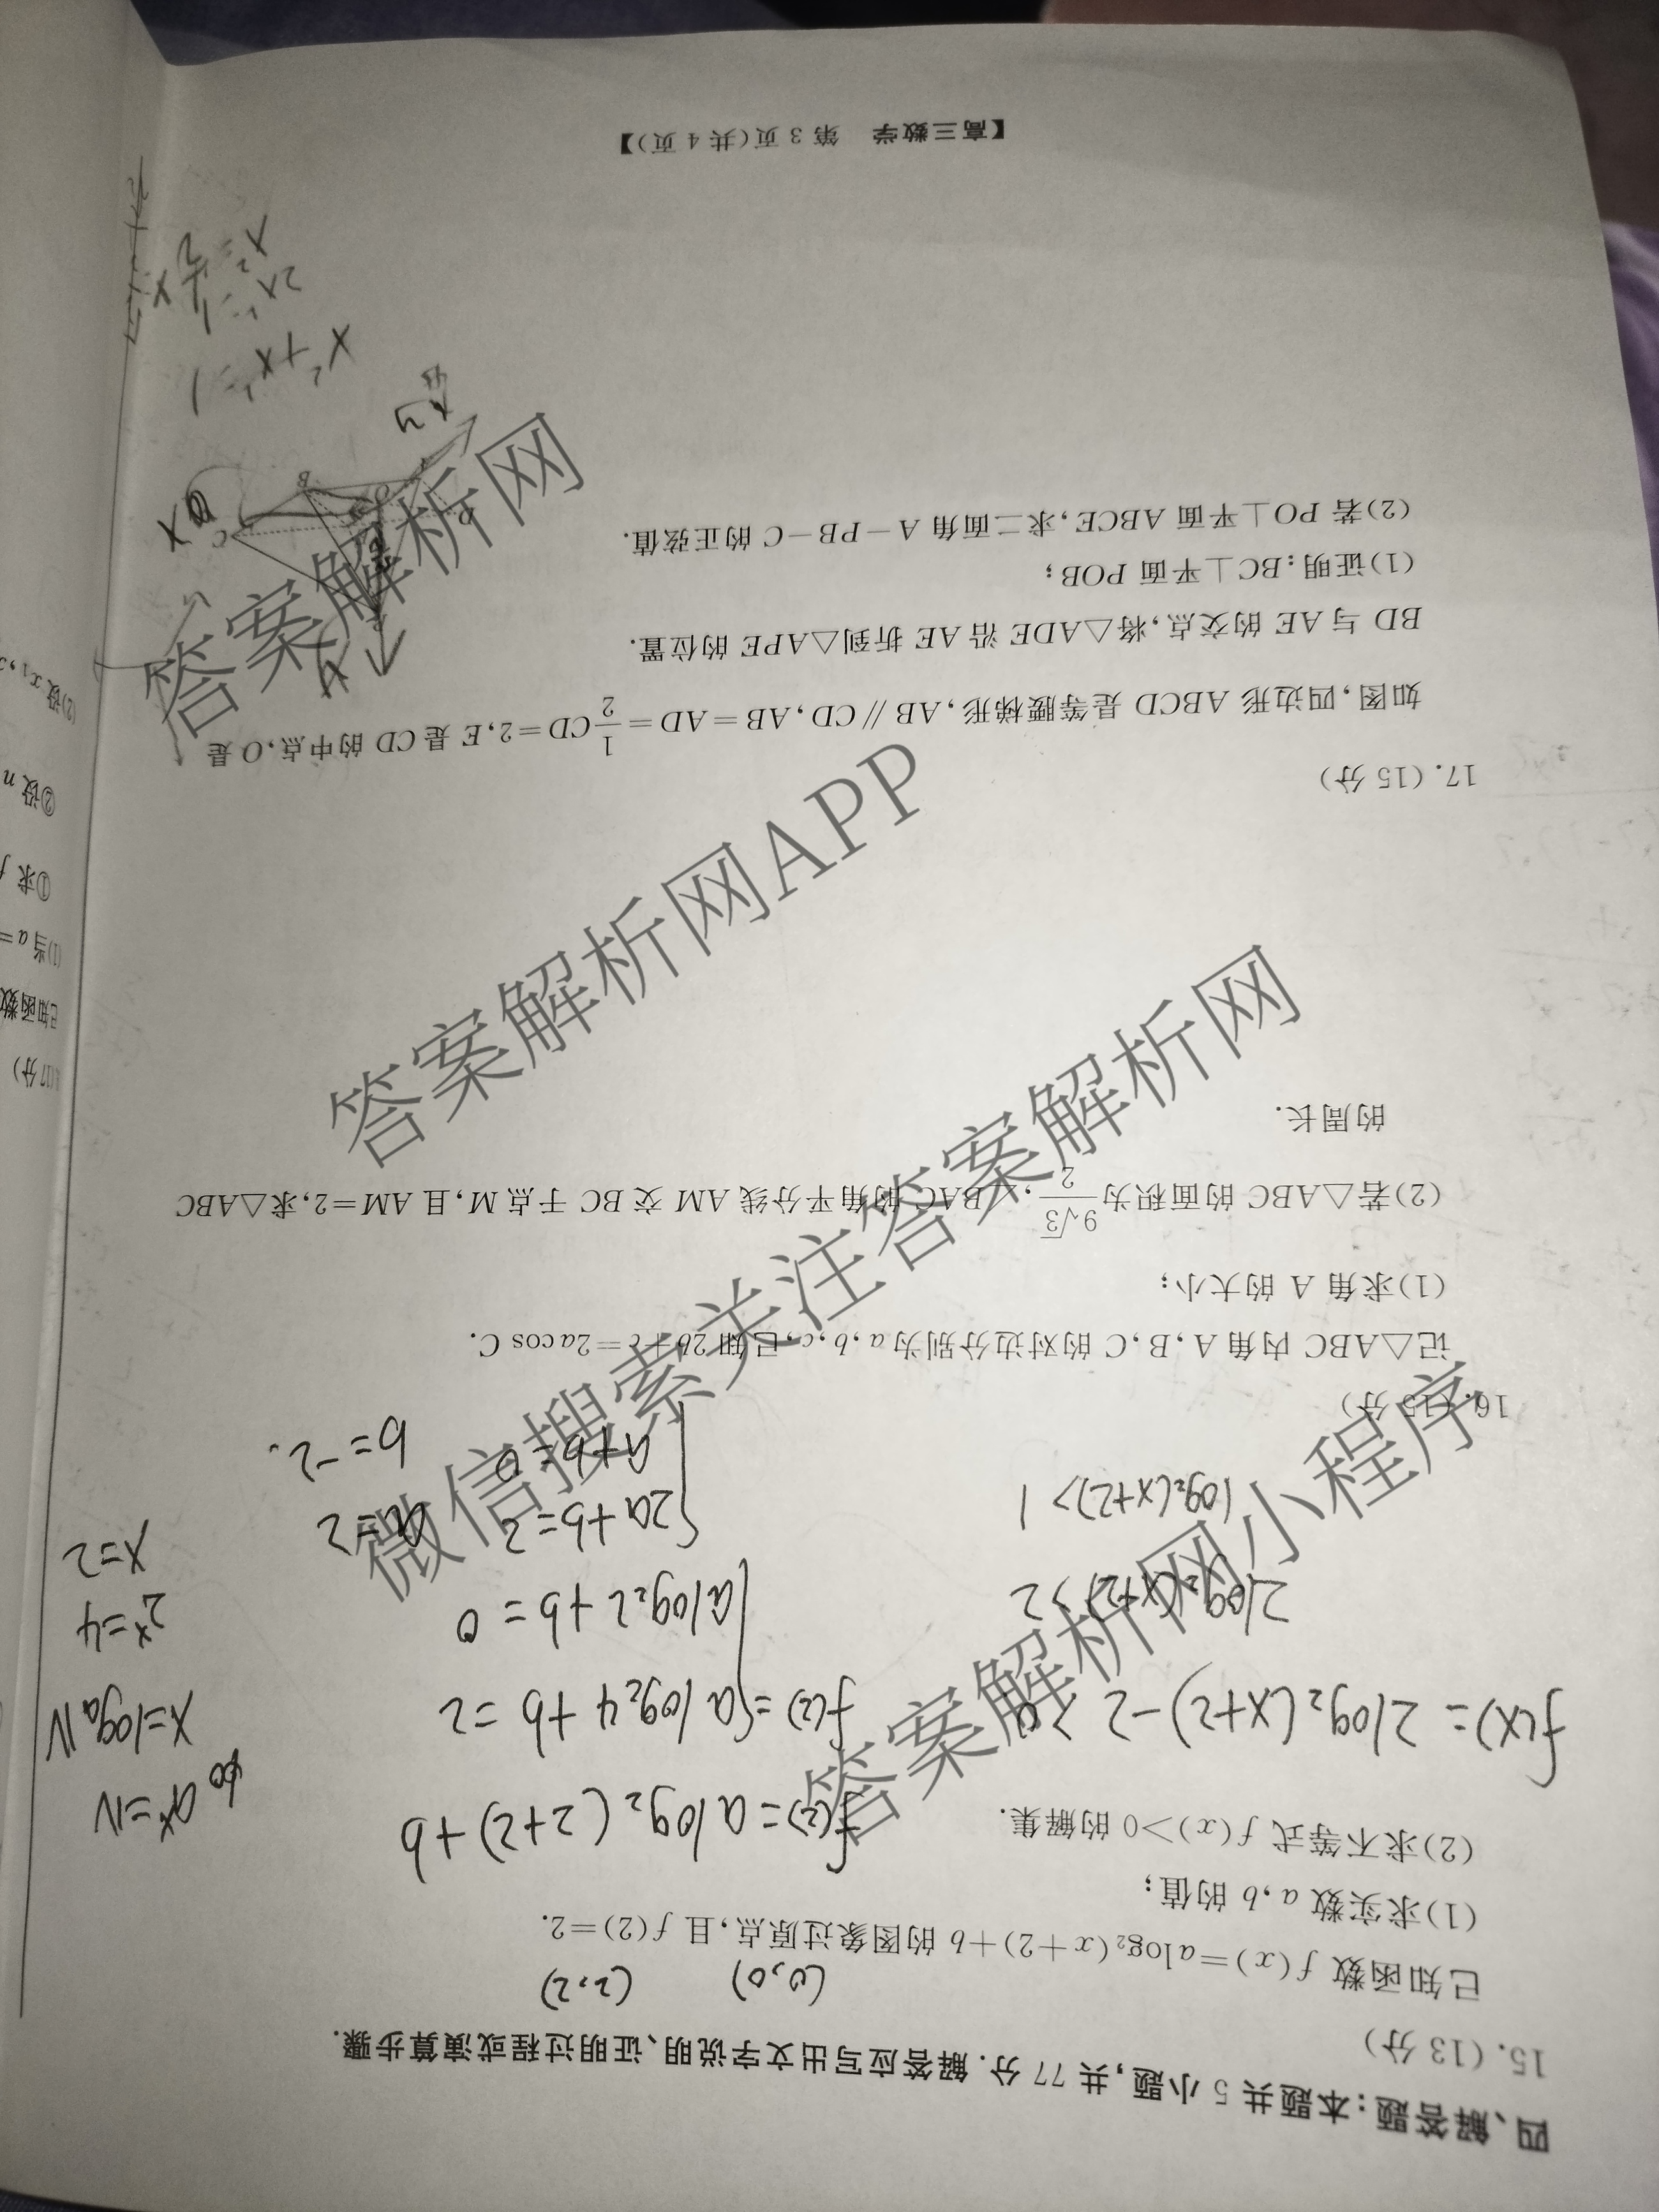 四、解答题：本题共 5 小题,共 77 分. 解答应写出文字说明、证明过程或演算步骤.
15. (13 分)
(0,0) (2,2)
已知函数 f(x)=alog₂(x+2)+b 的图象过原点,且 f(2)=2.
(1)求实数 a,b 的值;
(2)求不等式 f(x)>0 的解集.
f(2)=alog₂(2+2)+b
f(x)=2log₂(x+2)-2>0
f(2)={alog₂4+b=2
alog₂2+b=0
2log₂(x+2)>2
log₂(x+2)>1
{2a+b=2
a+b=0
a=2
b=-2.
aˣ=N
x=logₐN
2ˣ=4
x=2
16. (15 分)
记△ABC 内角 A,B,C 的对边分别为 a,b,c,已知 2b+c=2acos C.
(1)求角 A 的大小;
(2)若△ABC 的面积为 9√3/2,∠BAC 的角平分线 AM 交 BC 于点 M,且 AM=2,求△ABC
的周长.
17. (15 分)
如图,四边形 ABCD 是等腰梯形,AB∥CD,AB=AD=1/2CD=2,E 是 CD 的中点,O 是
BD 与 AE 的交点,将△ADE 沿 AE 折到△APE 的位置.
(1)证明:BC⊥平面 POB;
(2)若 PO⊥平面 ABCE,求二面角 A-PB-C 的正弦值.
x²+x²=1
2x²=1
【高三数学 第 3 页(共 4 页)】
17分)
已知函数
(1)当 a=
①求 f
②设 n
(2)设 x₁,
答案解析网
答案解析网APP
微信搜索关注答案解析网
答案解析网小程序